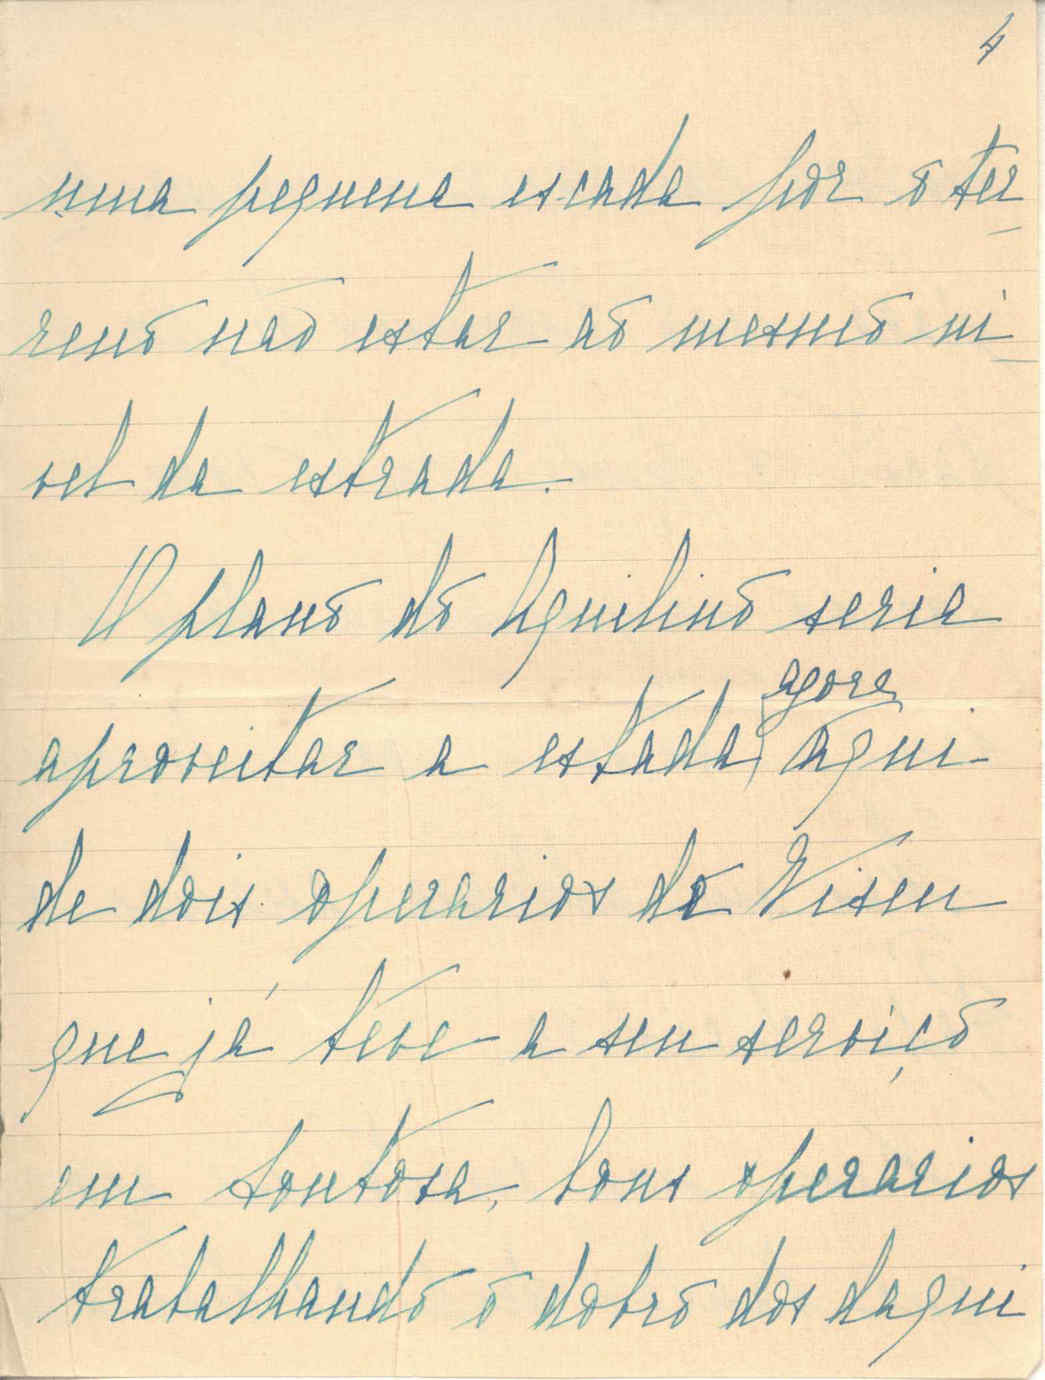 4
uma pequena escada por o ter-
reno não estar ao mesmo ni-
vel da estrada.
O plano do Aquilino seria
agora
aproveitar a estada, aqui
de dois operarios de Viseu
que já teve a seu serviço
em Soutosa, bons operarios
trabalhando o dobro dos daqui